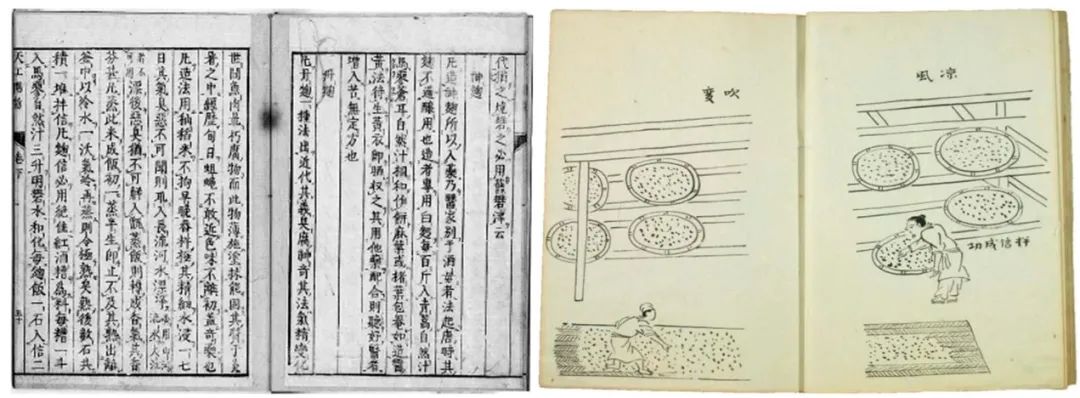 代之燒礬之必用舊礬滓云
神麯
凡造神麯所以入藥乃醫家別于酒母者法起唐時其
麯不通釀用也造者專用白麵每百斤入青蒿自然汁
馬蓼蒼耳自然汁相和作餅麻葉或楮葉包罨如造醬
黃法待生黃衣即晒收之其用他藥配合則聽好醫者
增入苦無定方也
丹麯
凡丹麯一種法出近代其義臭腐神奇其法氣精變化
世間魚肉最朽腐物而此物薄施塗抹能固其質于炎
暑之中經歷旬日蛆蠅不敢近色味不離初蓋奇藥也
凡造法用秈稻米不拘早晚舂杵極其精細水浸一七
日其氣臭惡不可聞則取入長流河水漂淨必用山河流水大江
者不可用漂後惡臭猶不可解入甑蒸飯則轉成香氣其香
芬甚凡蒸此米成飯初一蒸半生即止不及其熟出離
釜中以冷水一沃氣冷再蒸則令極熟矣熟後數石共
積一堆拌信凡麯信必用絕佳紅酒糟為料每糟一斗
入馬蓼自然汁三升明礬水和化每麯飯一石入信二
天工開物 卷下 五十
凉風
拌信成功
吹變